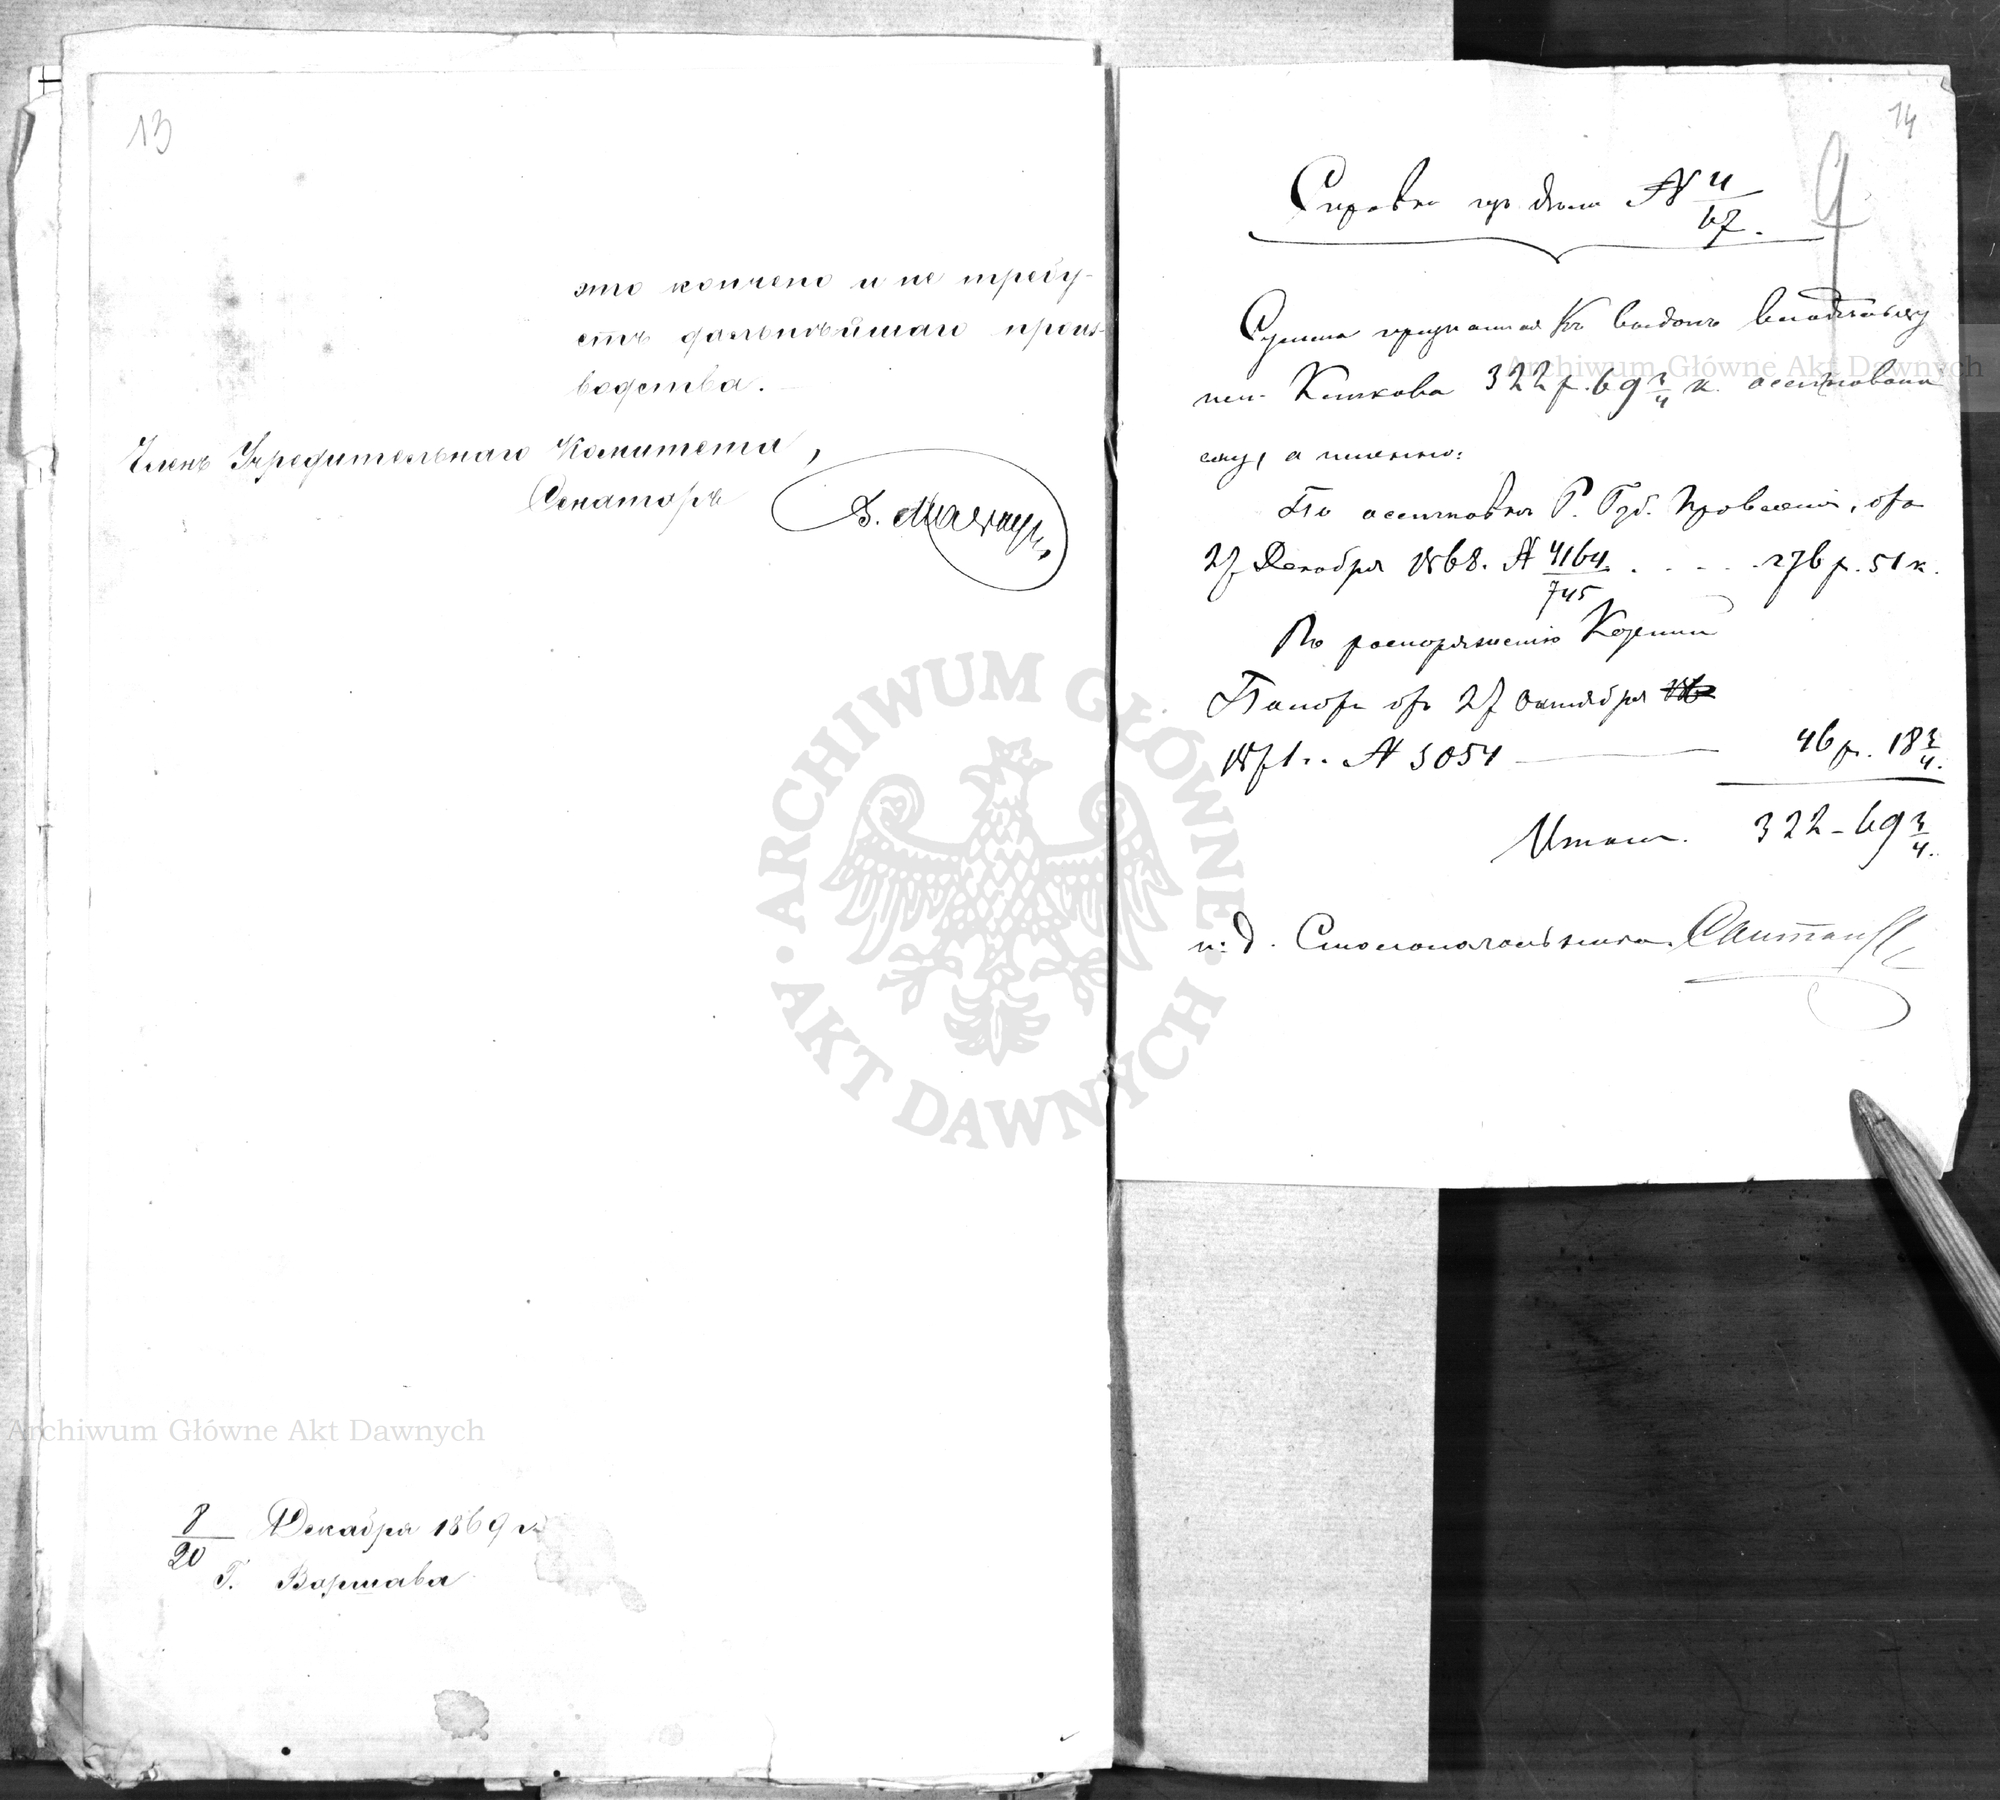 13
это кончено и не требу-
етъ дальнѣйшаго произ-
водства.
Членъ Учредительнаго Комитета,
Сенаторъ
8/20 Декабря 1869 г.
Г. Варшава
14
9
Справка изъ дѣла № 4/67.
Сумма признанная къ выдачѣ владѣльцу
им. 322 р. 69 3/4 к. ассигнована
ему, а именно:
По ассигновкѣ Р. Губ. Правленія, отъ
27 Декабря 1868. № 4164/745 . . . . 276 р. 51 к.
По распоряженію Казенной
Палаты отъ 27 Октября
1871 г. № 5054 — 46 р. 18 3/4.
Итого. 322 – 69 3/4.
и. д. Столоначальника
ARCHIWUM GŁÓWNE · AKT DAWNYCH ·
Archiwum Główne Akt Dawnych
Archiwum Główne Akt Dawnych